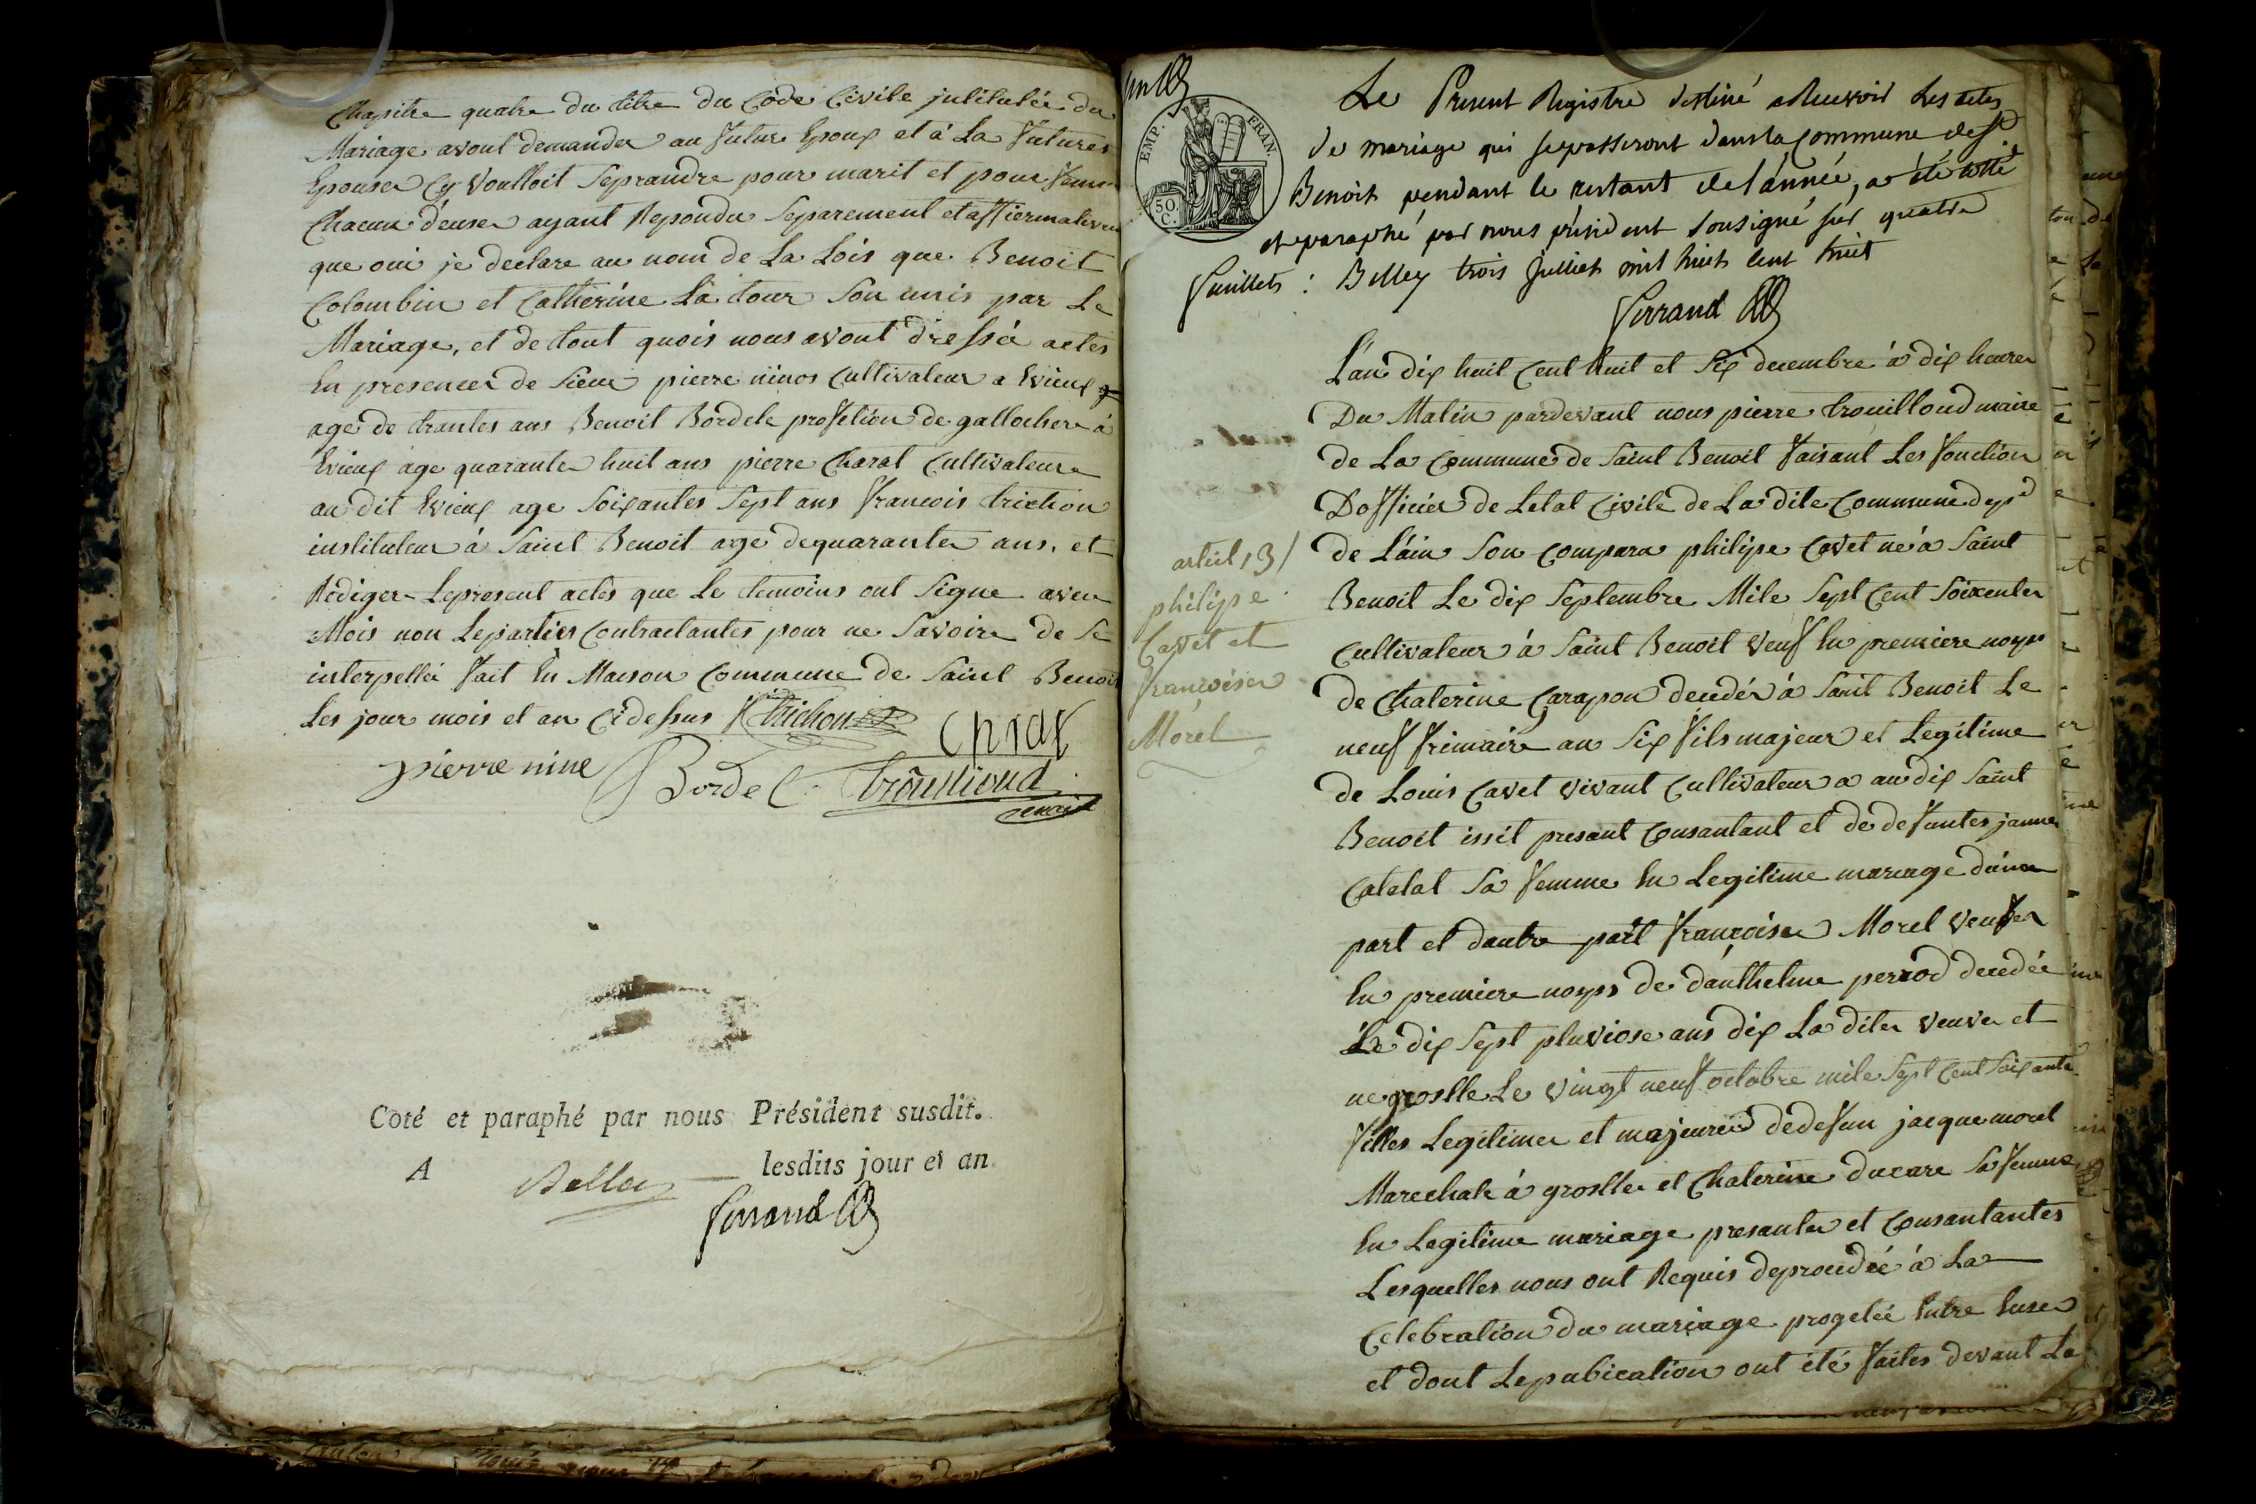 Chapitre quatre du titre du Code Civile jntitulée du
Mariage avont demander au futur Epoux et à La futures
Epouser Cy voulloit seprandre pour marit et pour femme
Chacun d'euser ayant Repondu Separement et affiermativem
que oui je declare au nom de La Lois que Benoit
Colombin et Catherine La tour Son unis par Le
Mariage, et de tout quois nous avont dressée actes
En presences de Sieur pierre ninos Cultivateur a Evieux
age de trantes ans Benoit Bordel profetion de gallocher à
Evieux age quarante huit ans pierre Charat Cultivateur
au dit Evieux age Soixantes Sept ans francois trichon
instituteur à Saint Benoit agé dequarantes ans, et
Rediger Lepresent actes que Le temoins ont Signe avec
Mois non Leparties Contractantes pour ne Savoire de Se
interpellée fait En Maison Commune de Saint Benoit
Les jour mois et an Cidessus trichon
Charat
pierre nine Bordel trouilloud
maire
Coté et paraphé par nous Président susdit.
A Belley lesdits jour et an.
Ferrand
EMP. FRAN.
50. C.
Le Present Registre destiné a Recevoir Les actes
de mariage qui sepasseront dans la Commune de St
Benoit pendant le restant de l'année, a été cotté
et paraphé par nous président sousigné sur quatre
feuillets : Belley trois juillet mil huit cent huit
Ferrand
L'an dix huit Cent huit et Six decembre à dix heures
Du Matin pardevant nous pierre trouilloud maire
de La Commune de Saint Benoit faisant Les fonction
Dofficier de Letat Civile de La dite Commune depd
de L'ain Son Comparu philipe Cavet né à Saint
Benoit Le dix Septembre Mile Sept Cent Soixentes
Cultivateur à Saint Benoit veuf En premiere noyps
de Chaterine Carapon decedée à Saint Benoit Le
neuf frimaire an Six fils majeur et Legitime
de Louis Cavet vivant Cultivateur a au dix Saint
Benoit issit presant Consantant et de defuntes janne
Catelat Sa femme En Legitime mariage d'une
part et dautre part françoise Morel veufve
En premiere noyps de d'anthelme perrod decedée
Le dix Sept pluviose ans dix La dites veuve et
ne groslle Le vingt neuf octobre mile Sept Cent Soixante
filles Legitimes et majeure dedefun jacque morel
Marechale à groslle et Chaterine ducare Sa femme
En Legitime mariage presantes et Consantantes
Lesquelles nous ont Requis deprocedée à La
Celebration du mariage progetée Entre Euse
et dont Lepubication ont été faites devant La
articl 13/
philipe
Cavet et
françoise
Morel